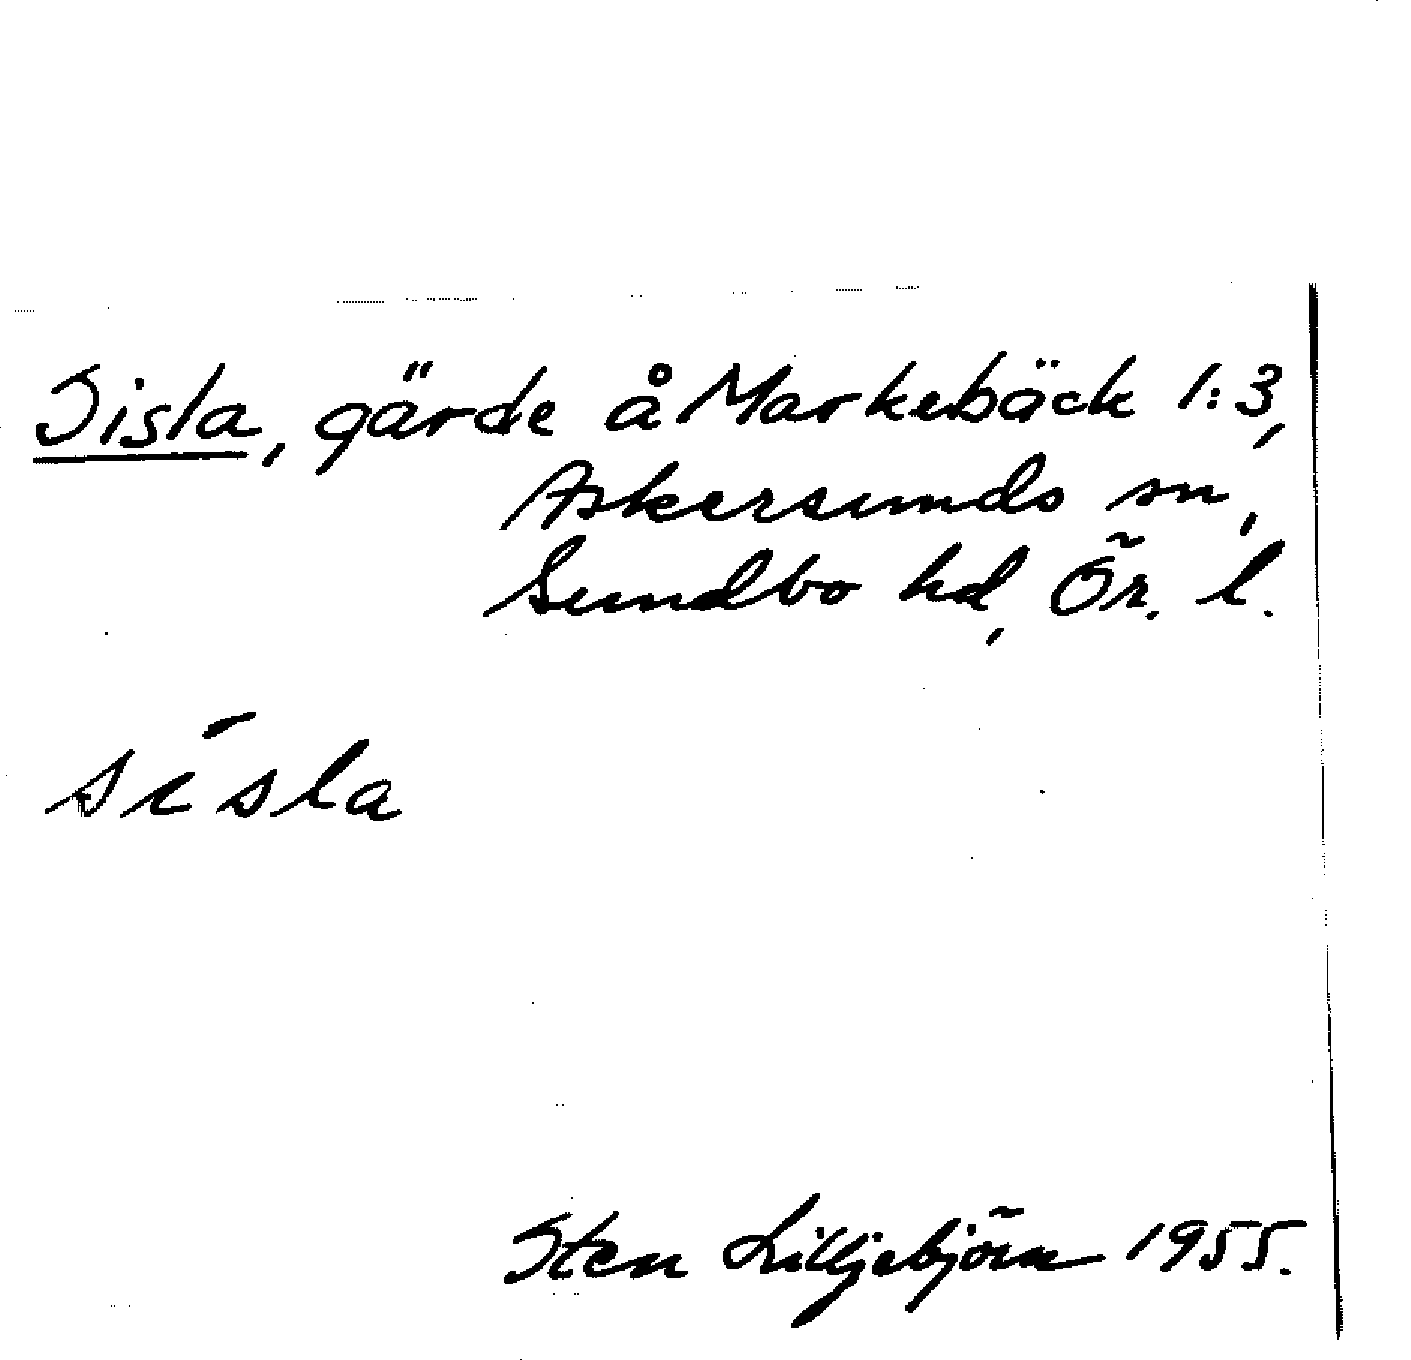 Sisla, gärde å Markebäck 1:3,
Askersunds sn,
Sundbo hd, Ör. l.
sísla
Sten Liljebjörn 1955.